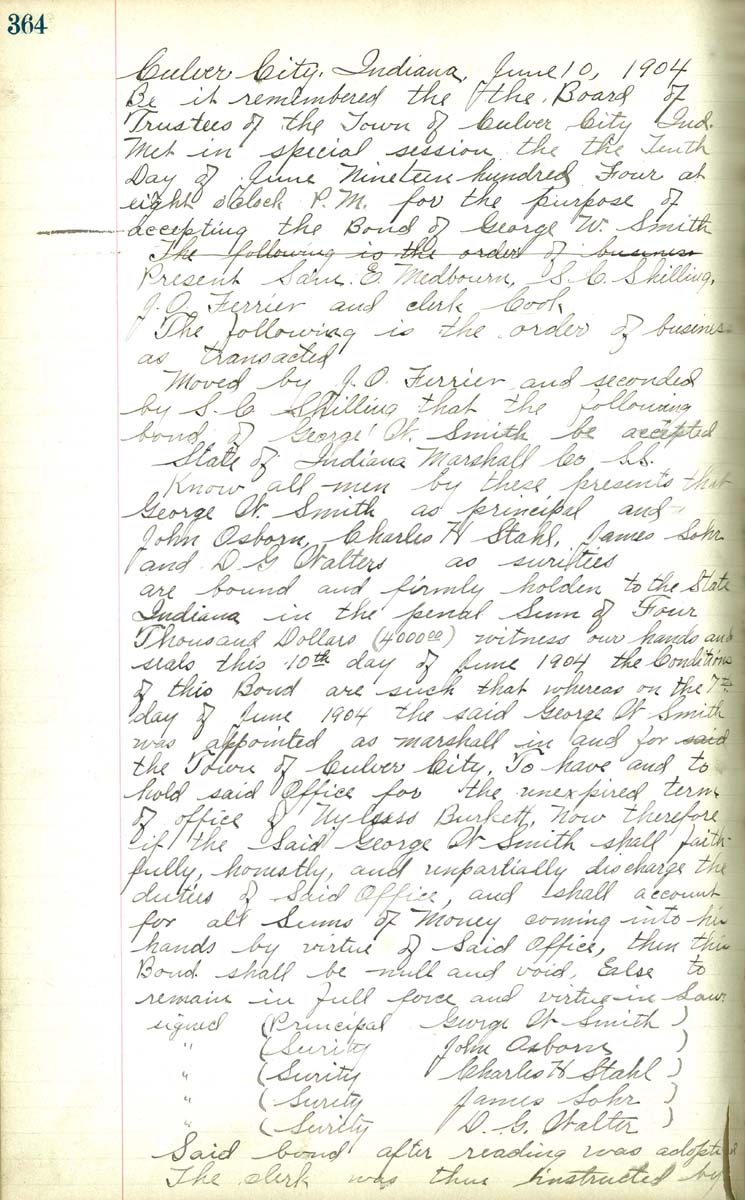 364
Culver City, Indiana, June 10, 1904
Be it remembered the the Board of
Trustees of the Town of Culver City Ind.
Met in special session the the Tenth
Day of June Nineteen hundred Four at
eight o'Clock P.M. for the purpose of
accepting the Bond of George W. Smith
The following is the order of business
Present Sam. E. Medbourn, S. C. Shilling,
J. O. Ferrier and clerk Cook
The following is the order of busines
as transacted
Moved by J. O. Ferrier and seconded
by S. C. Shilling that the following
bond of George W. Smith be accepted
State of Indiana Marshall Co S.S.
Know all men by these presents that
George W. Smith as principal and
John Osborn, Charles H Stahl, James Sohr
and D G Walters as surities
are bound and firmly holden to the State
Indiana in the penal Sum of Four
Thousand Dollars (4000 00) witness our hands and
seals this 10th day of June 1904 the Conditions
of this Bond are such that whereas on the 7th
day of June 1904 the said George W Smith
was appointed as marshall in and for said
the Town of Culver City. To have and to
hold said Office for the unexpired term
of office of Nyless Burkett, Now therefore
if the Said George W Smith shall faith-
fully, honestly, and unpartially discharge the
duties of Said Office, and shall account
for all Sums of Money coming into his
hands by virtue of Said Office, then this
Bond shall be null and void, Ealse to
remain in full force and virtue in Law.
signed (Principal George W Smith )
" (Surity John Osborn )
" (Surity Charles H Stahl )
" (Surity James Sohr )
" (Surity D. G. Walter )
Said bond after reading was adopted
The clerk was thus instructed by